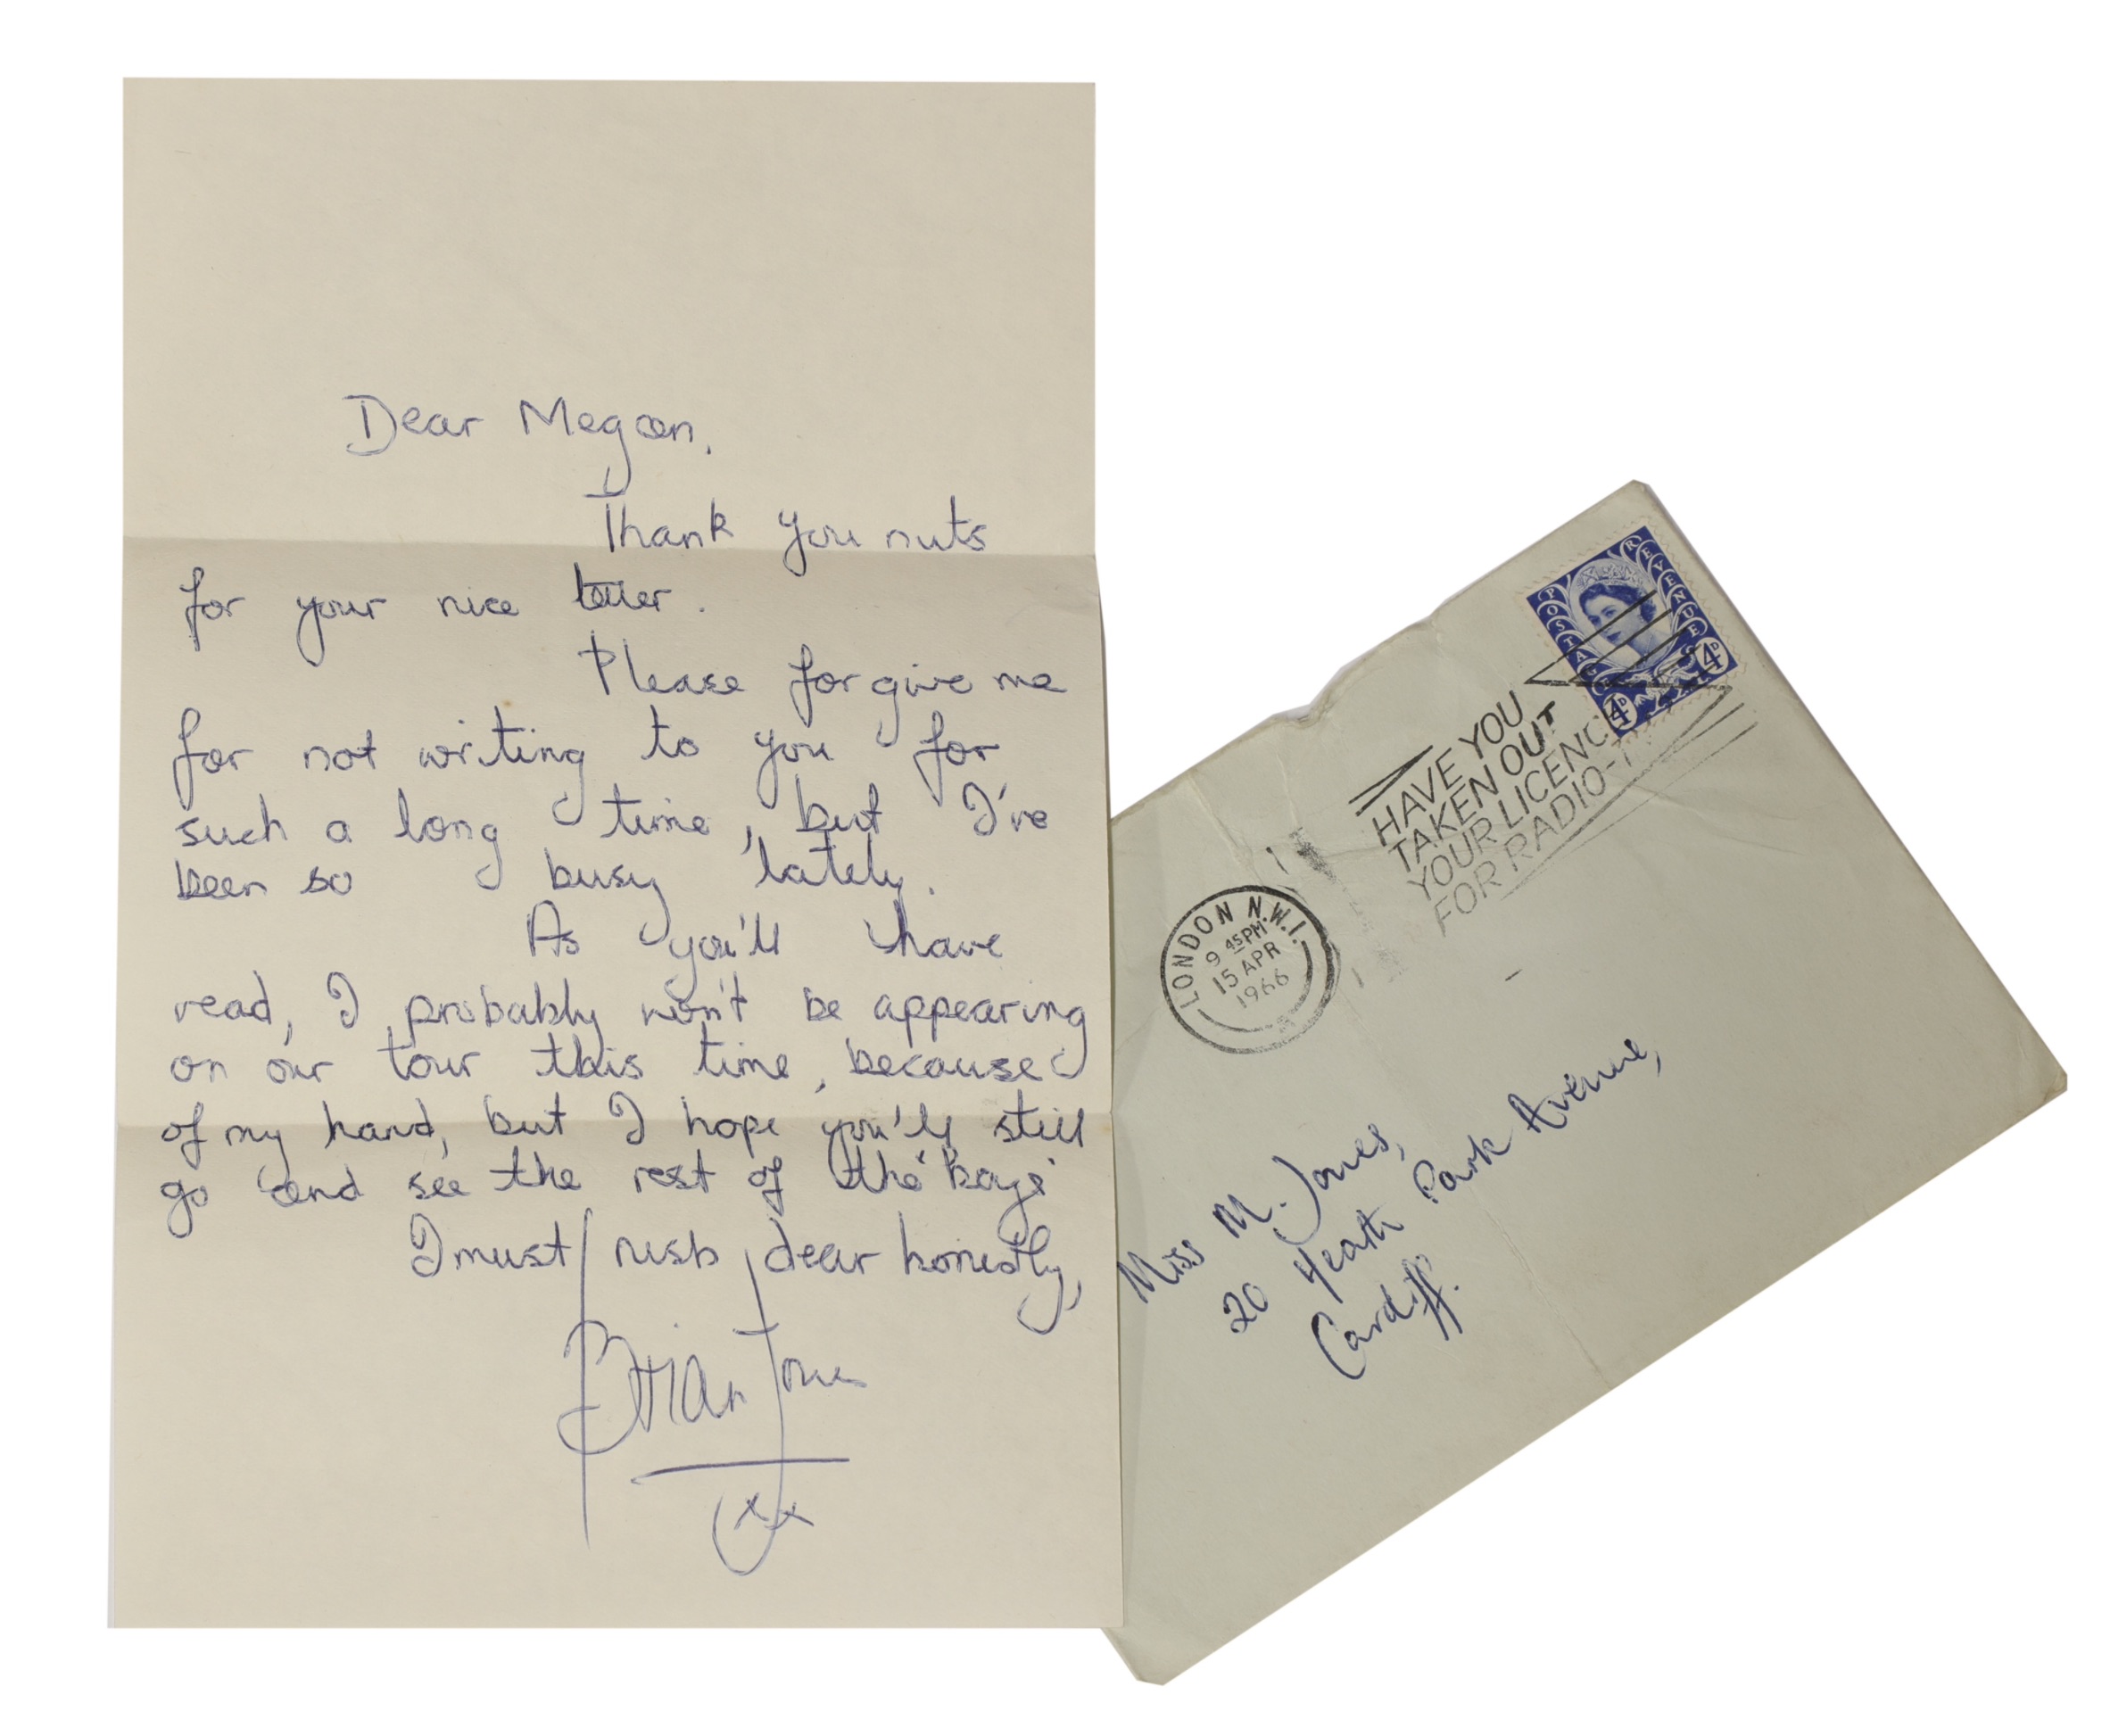 Dear Megan,
Thank you nuts
for your nice letter.
Please forgive me
for not writing to you for
such a long time, but I've
been so busy lately.
As you'll have
read, I probably won't be appearing
on our tour this time, because
of my hand, but I hope you'll still
go and see the rest of the 'boys'
I must rush dear honestly,
Brian Jones
xx
POSTAGE REVENUE
4D 4D
HAVE YOU
TAKEN OUT
YOUR LICENC
FOR RADIO-T
LONDON N.W.1.
9 45PM
15 APR
1966
Miss M. Jones,
20 Heath Park Avenue,
Cardiff.